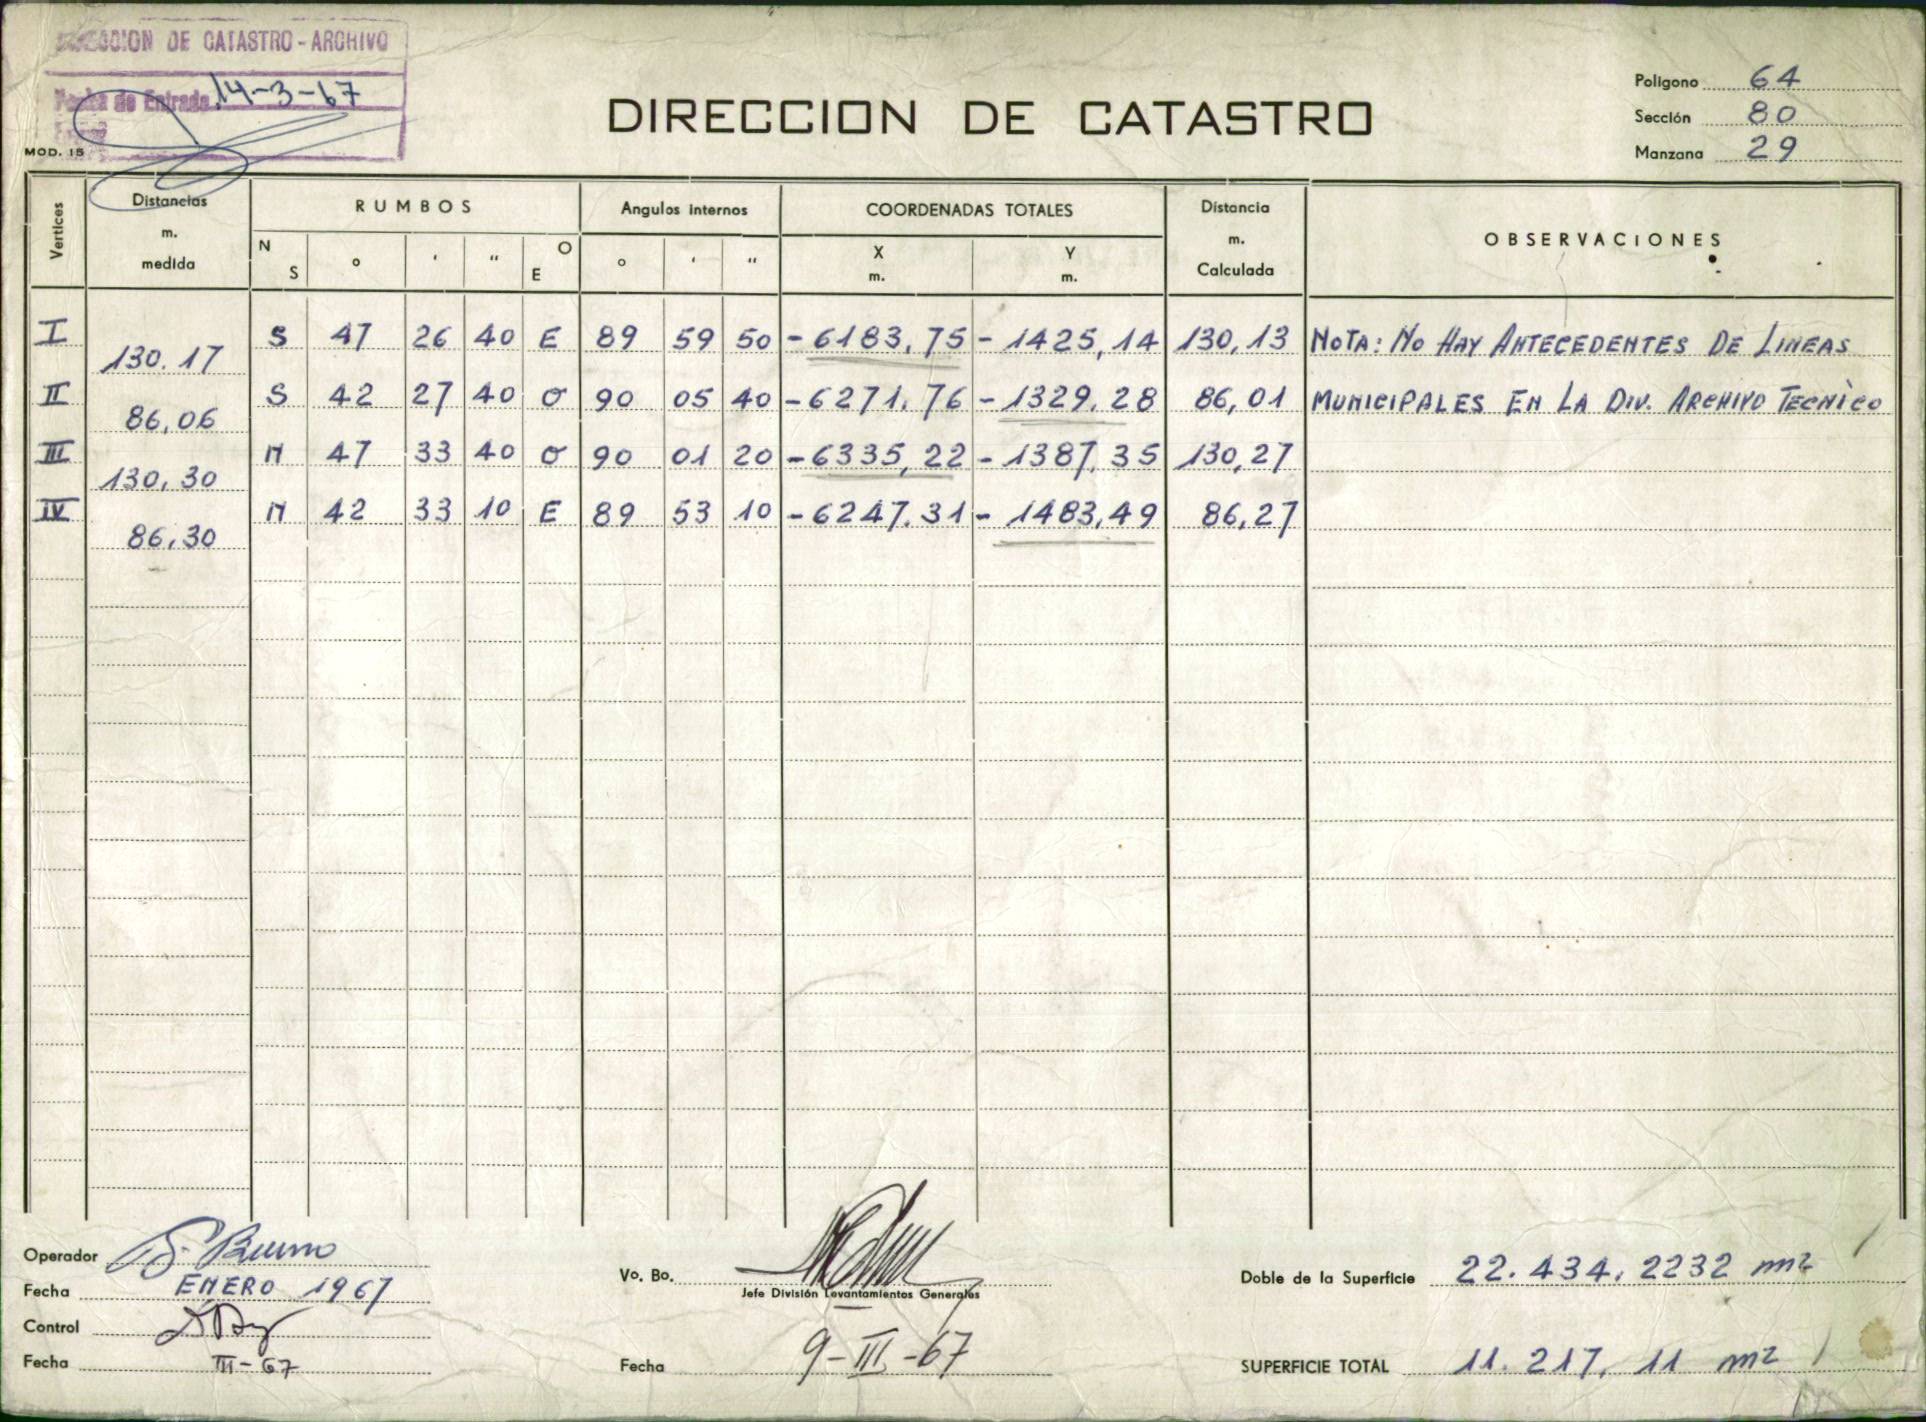 DIRECCION DE CATASTRO - ARCHIVO
Fecha de Entrada 14-3-67
MOD. 15
DIRECCION DE CATASTRO
Poligono 64
Sección 80
Manzana 29
Vertices
Distancias m. medida
RUMBOS
N S ° ' " O E
Angulos internos
° ' "
COORDENADAS TOTALES
X m. Y m.
Distancia m. Calculada
OBSERVACIONES
I 130.17 S 47 26 40 E 89 59 50 -6183,75 - 1425,14 130,13 NOTA: NO HAY ANTECEDENTES DE LINEAS
II 86,06 S 42 27 40 O 90 05 40 -6271.76 - 1329.28 86,01 MUNICIPALES EN LA DIV. ARCHIVO TECNICO
III 130,30 N 47 33 40 O 90 01 20 -6335,22 - 1387.35 130,27
IV 86,30 N 42 33 10 E 89 53 10 -6247.31 - 1483,49 86,27
Operador
Fecha ENERO 1967
Control
Fecha III-67
Vo. Bo.
Jefe División Levantamientos Generales
Fecha 9-III-67
Doble de la Superficie 22.434,2232 m2
SUPERFICIE TOTAL 11.217,11 m2